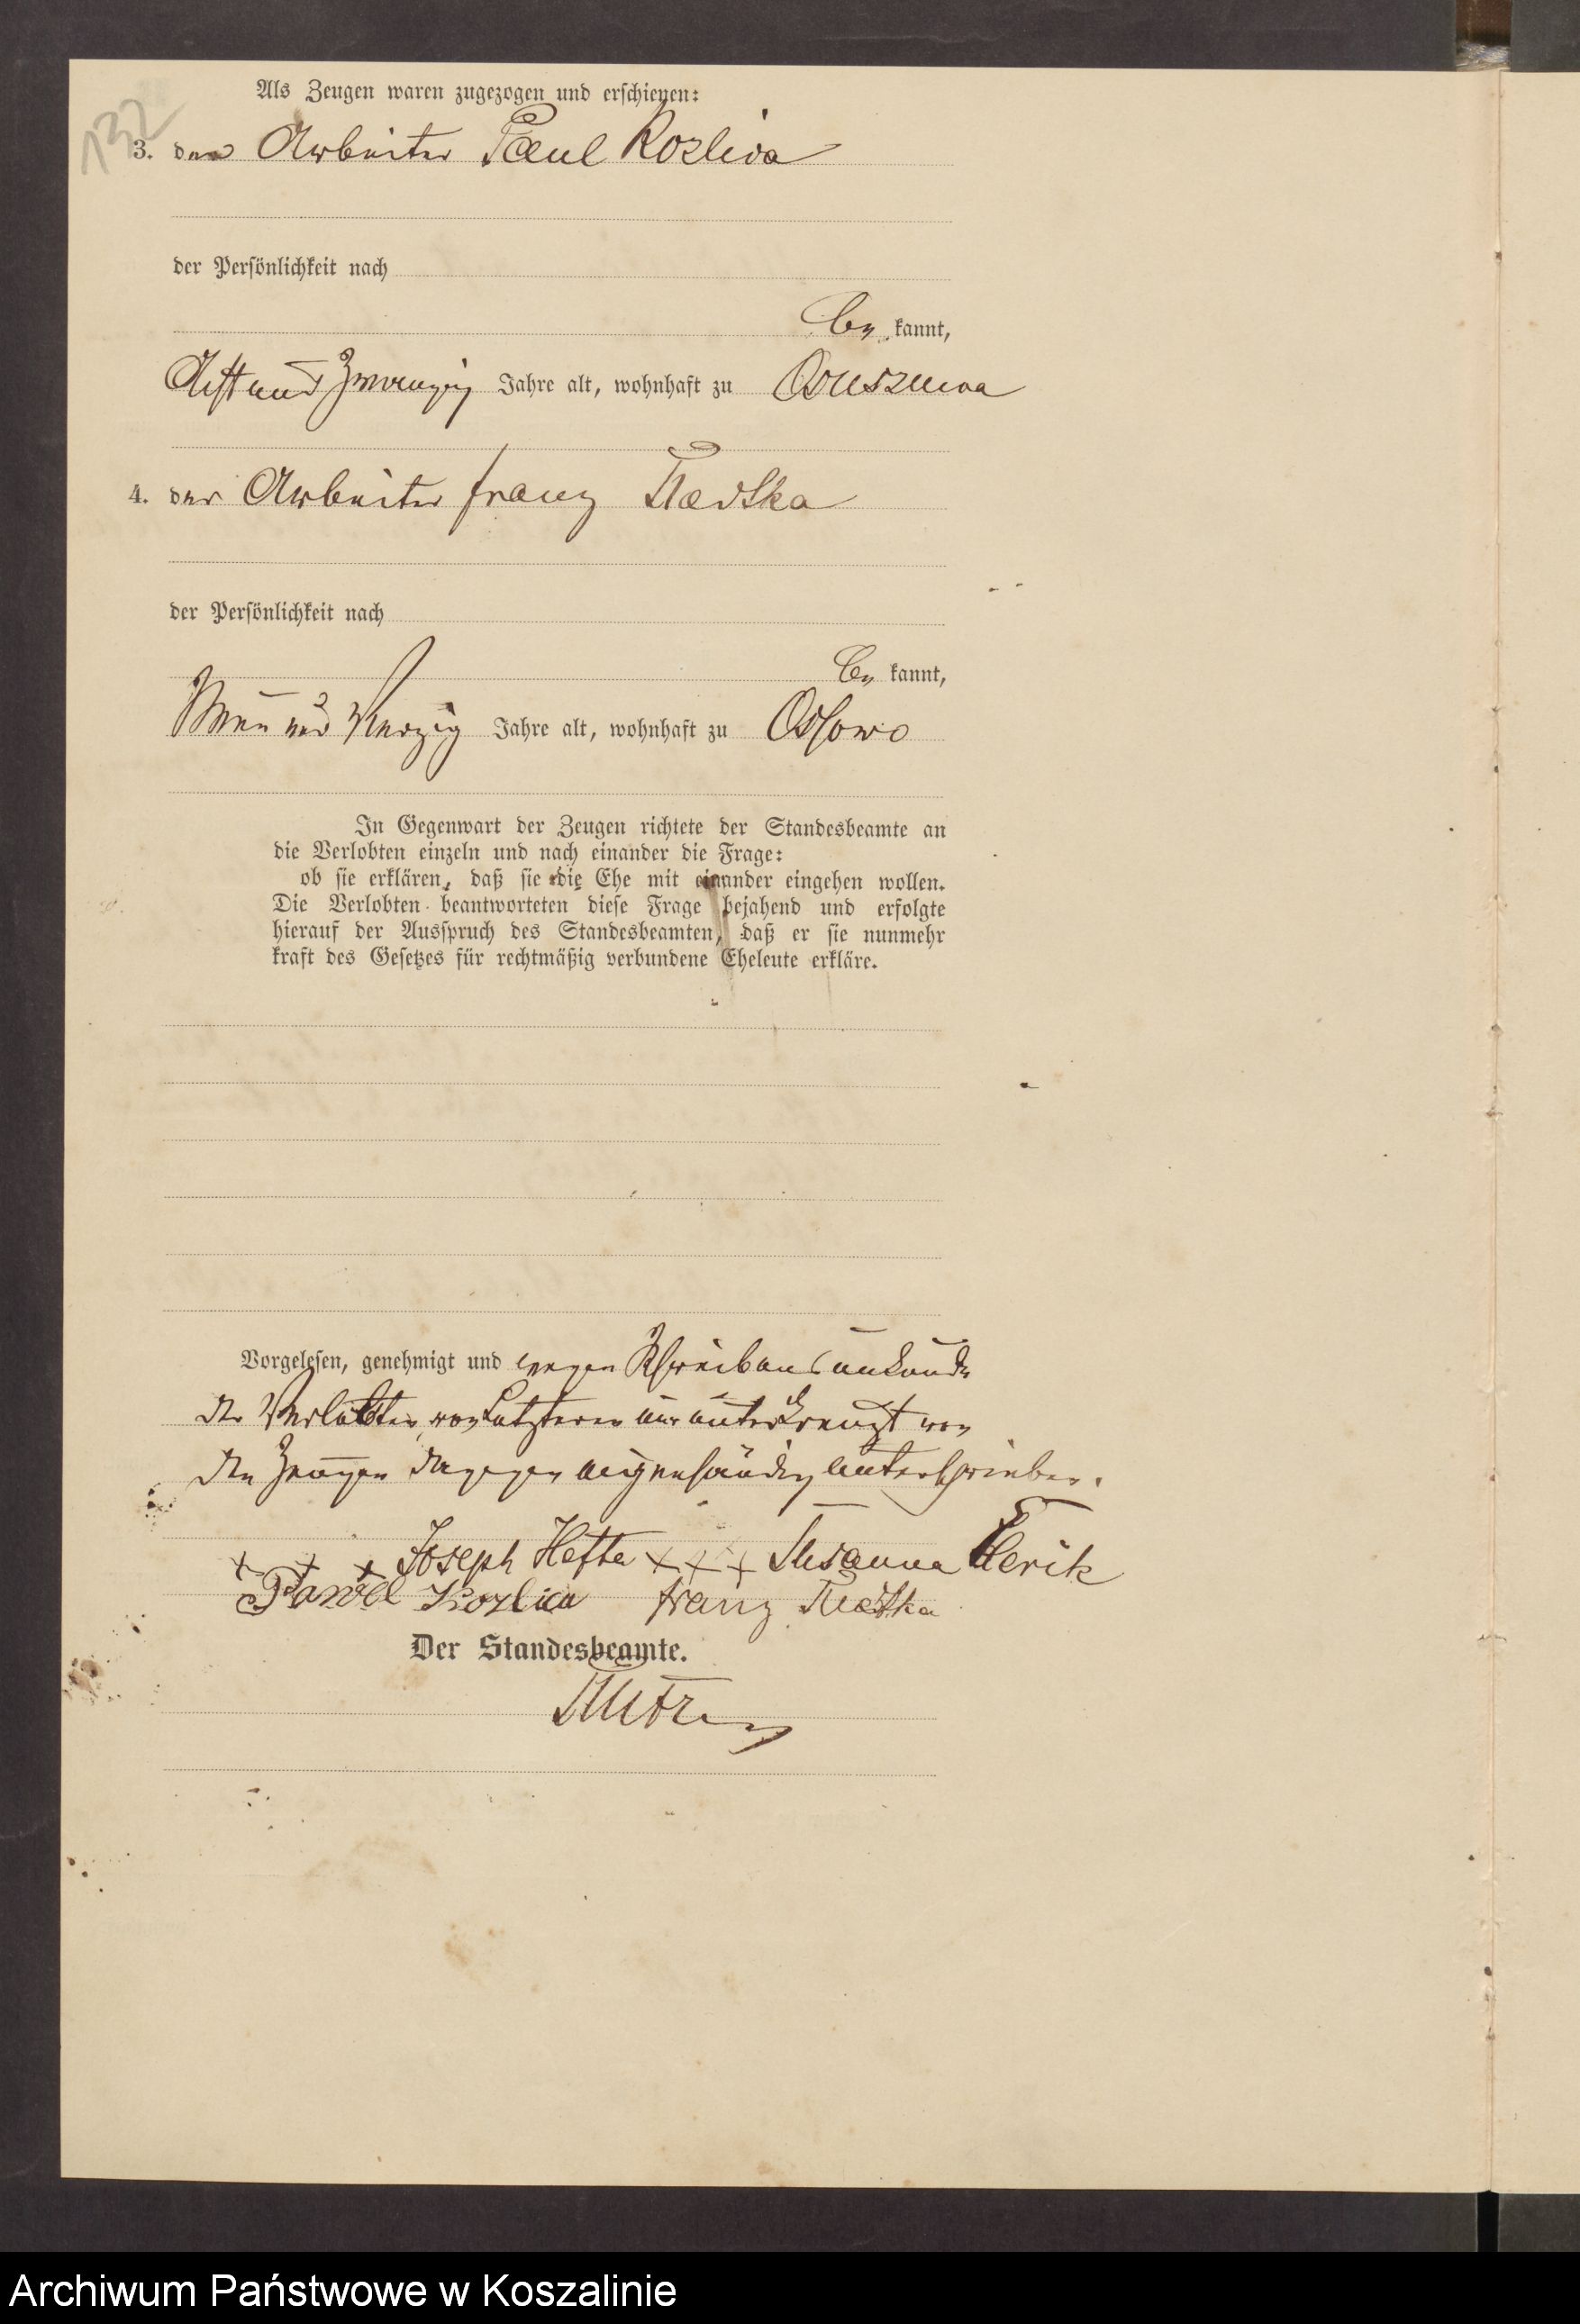 132
Als Zeugen waren zugezogen und erschienen:
3. der Arbeiter Paul Kozliva
der Persönlichkeit nach
be kannt,
Acht und Zwanzig Jahre alt, wohnhaft zu
4. der Arbeiter Franz
der Persönlichkeit nach
be kannt,
Neun und Vierzig Jahre alt, wohnhaft zu Ossowo
In Gegenwart der Zeugen richtete der Standesbeamte an
die Verlobten einzeln und nach einander die Frage:
ob sie erklären, daß sie die Ehe mit einander eingehen wollen.
Die Verlobten beantworteten diese Frage bejahend und erfolgte
hierauf der Ausspruch des Standesbeamten, daß er sie nunmehr
kraft des Gesetzes für rechtmäßig verbundene Eheleute erkläre.
Vorgelesen, genehmigt und wegen Schreibensunkunde
der Verlobten von Letzteren nur unterkreuzt von
den Zeugen dagegen eigenhändig unterschrieben.
+ + + Joseph Hefta + + + Susanna
Pawel Kozliva Franz
Der Standesbeamte.
Archiwum Państwowe w Koszalinie